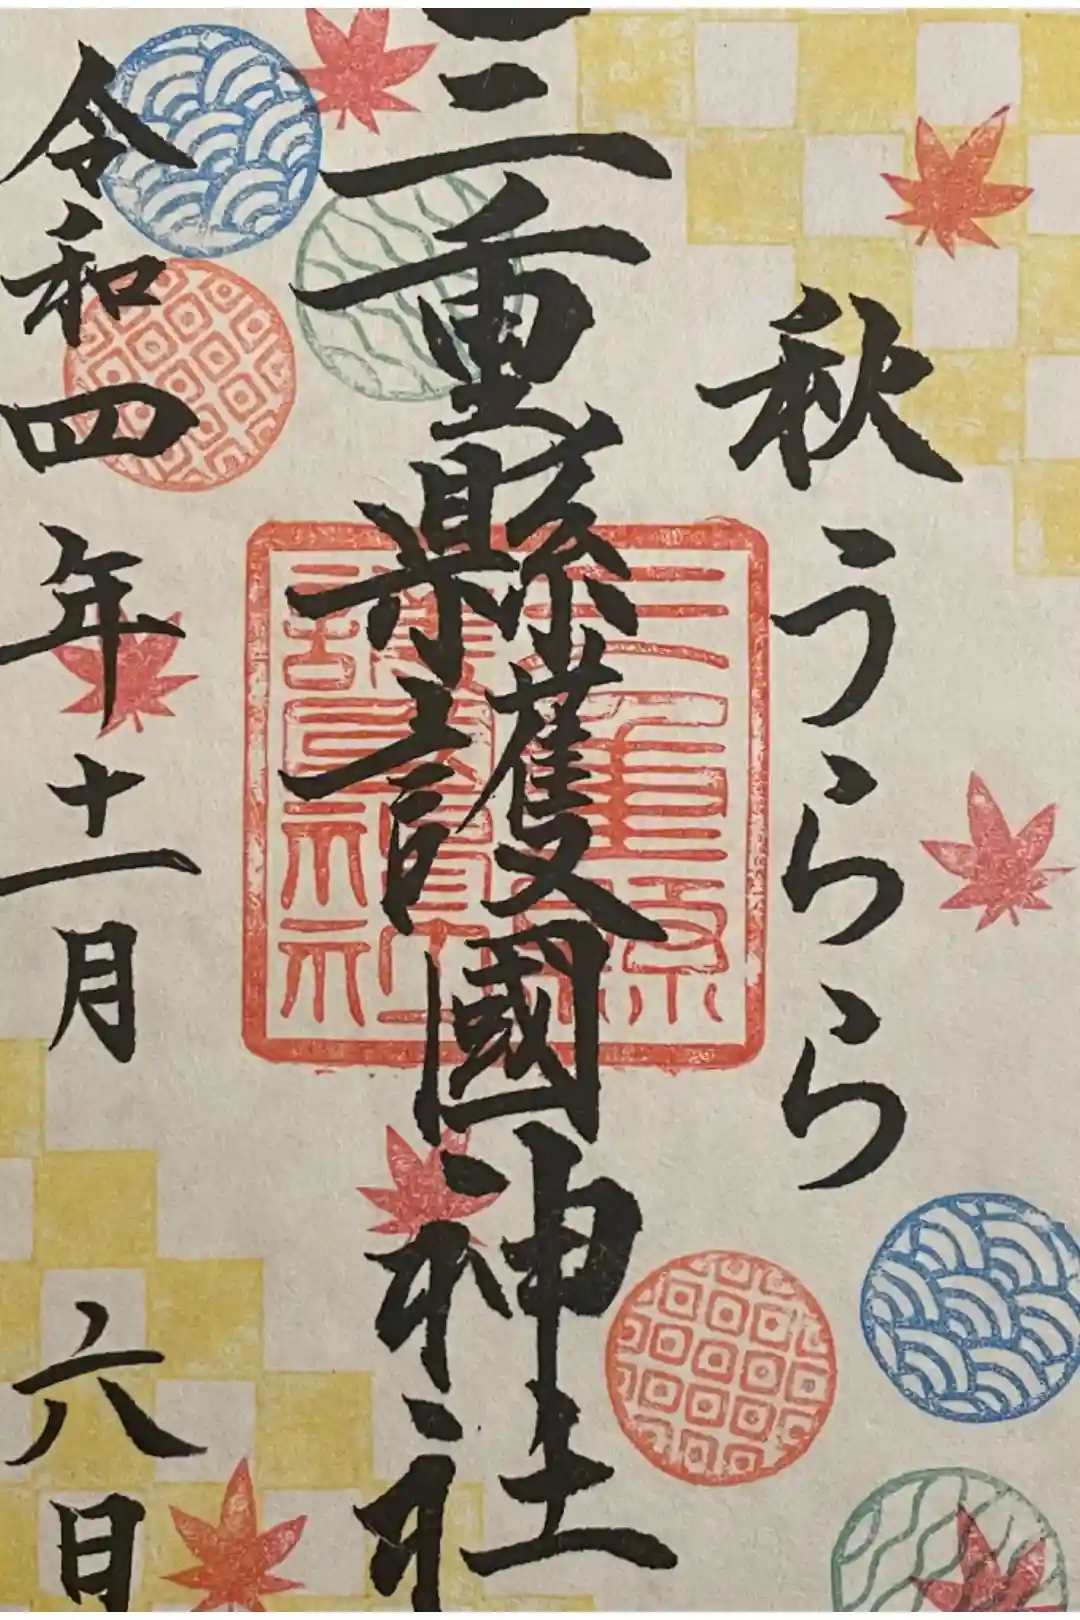 秋うらら
三重縣護國神社
三重縣護國神社
令和四年十一月六日